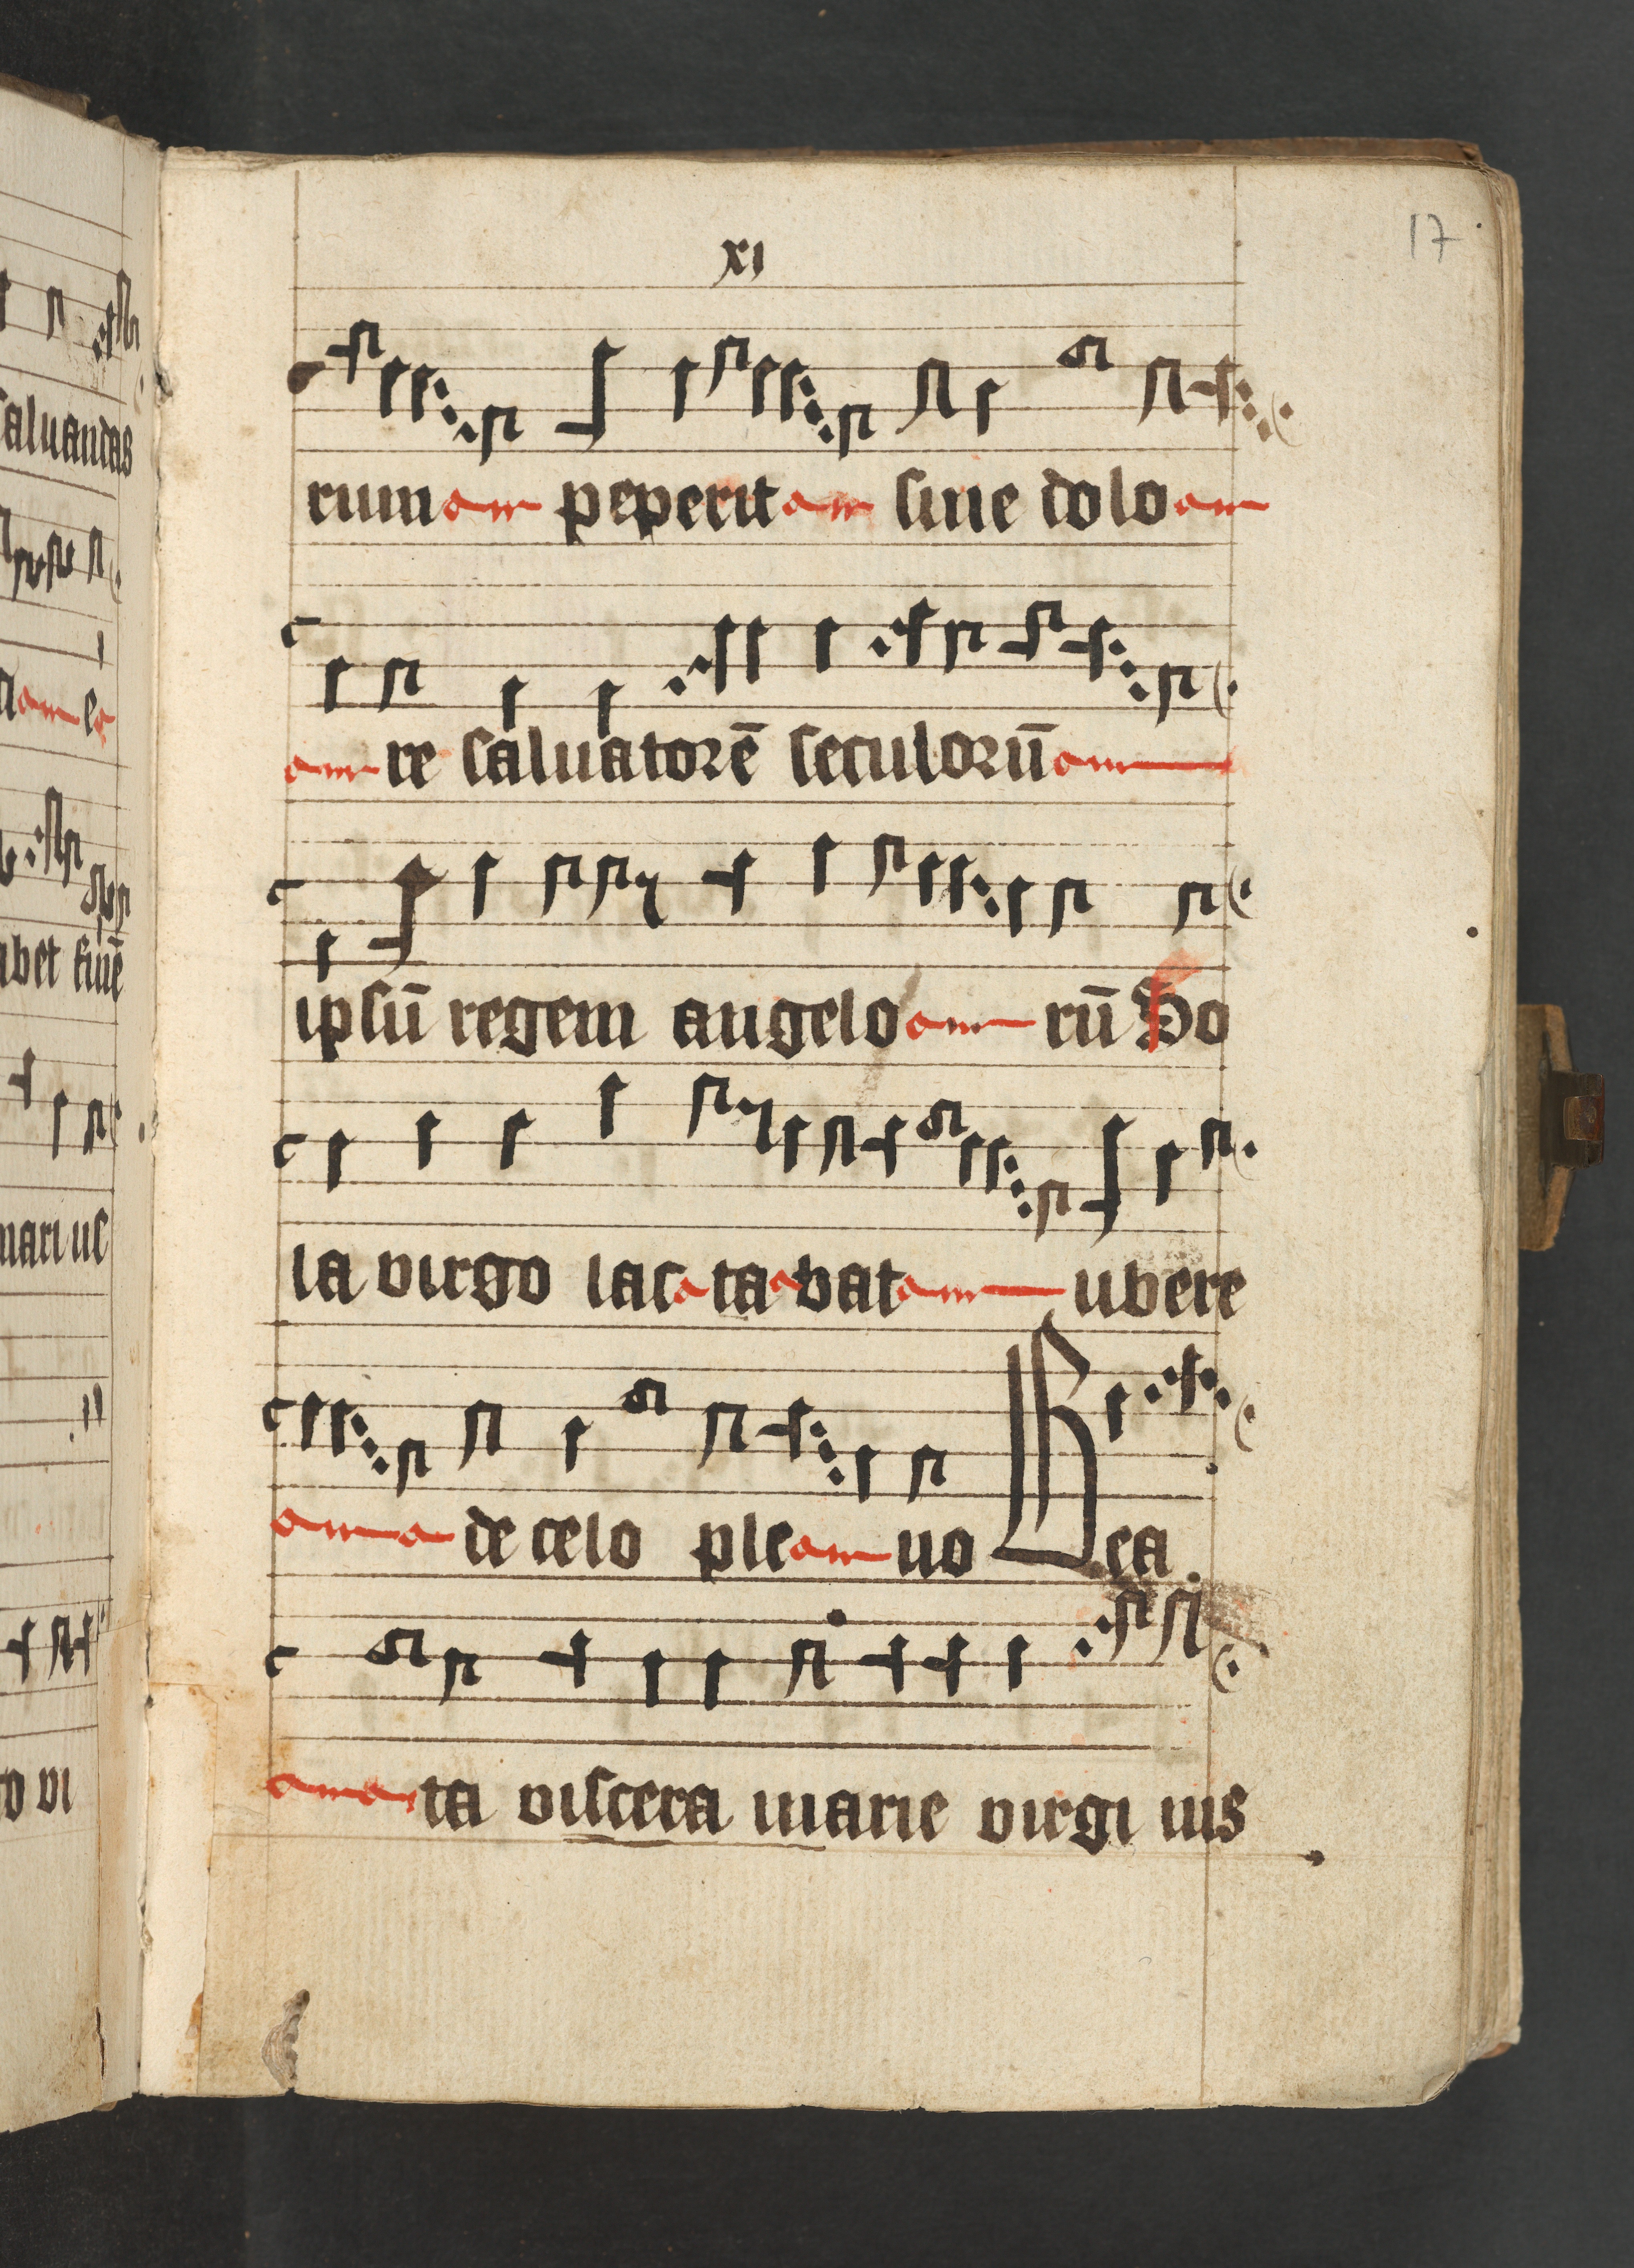 xi
17
rum peperit sine dolo
re saluatorē seculorū
ipsū regem angelo rū So
la virgo lac ta bat ubere
de celo ple no Bea
ta viscera marie virgi nis
saluandas
abet finē
mari us
o vi